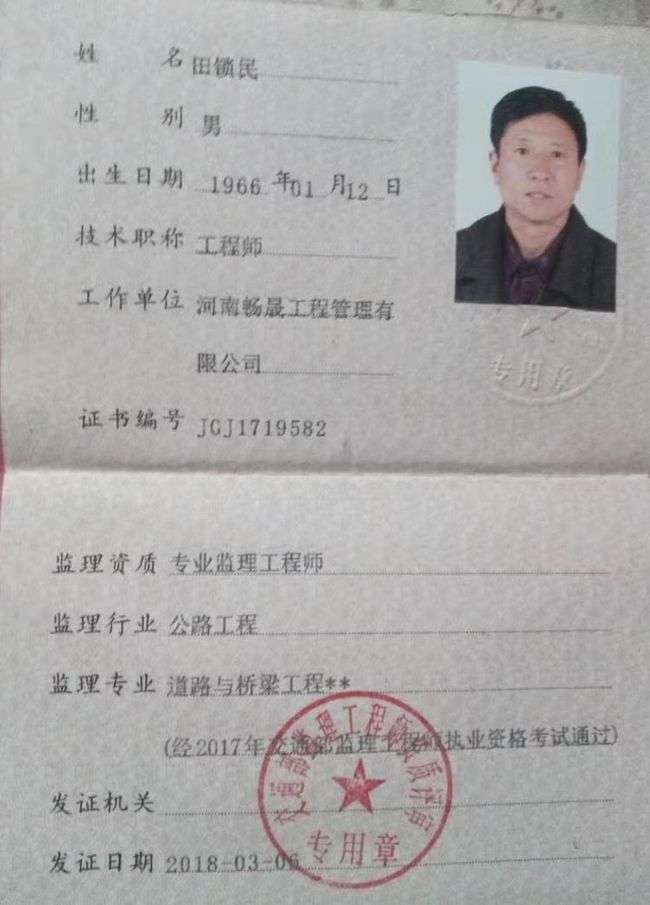 姓名 田锁民
性别 男
出生日期 1966年01月12日
技术职称 工程师
工作单位 河南畅晟工程管理有
限公司
专用章
证书编号 JGJ1719582
监理资质 专业监理工程师
监理行业 公路工程
监理专业 道路与桥梁工程**
(经2017年交通部监理工程师执业资格考试通过)
发证机关
专用章
发证日期 2018-03-06